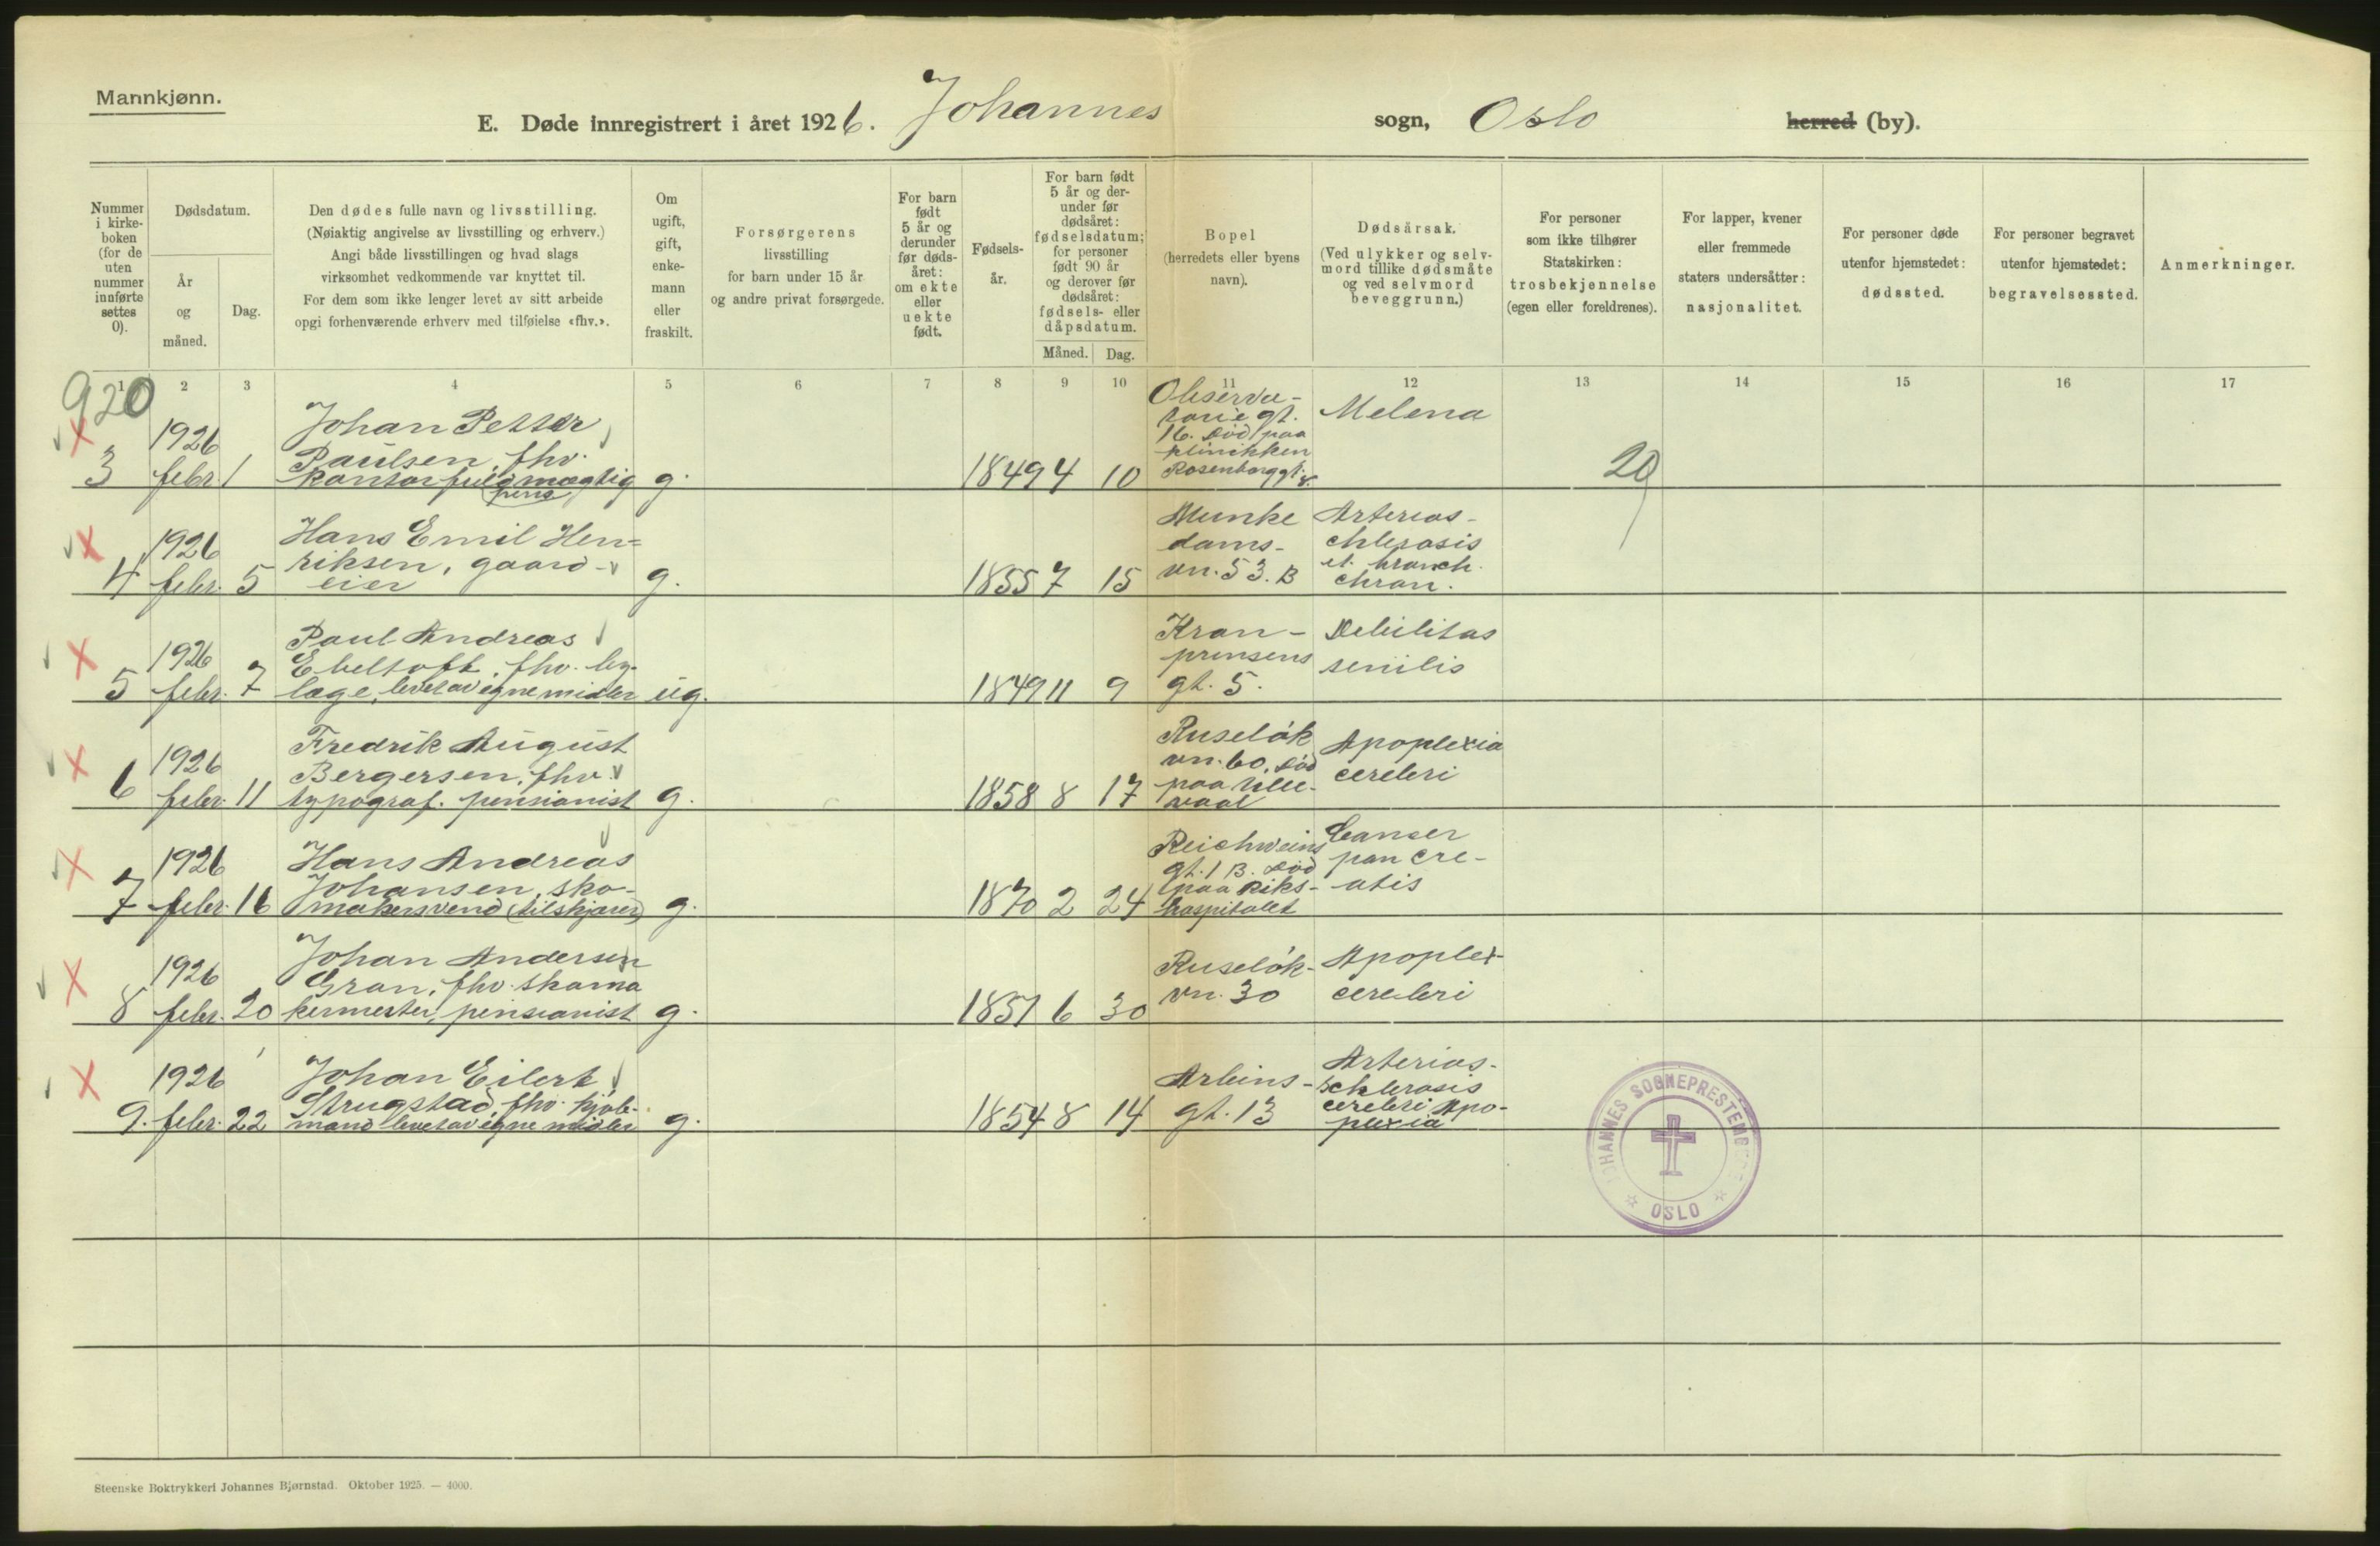 Mannkjønn.
E. Døde innregistrert i året 1926. Johannes sogn, Oslo herred (by).
Nummer
i kirke-
boken
(for de
uten
nummer
innførte
settes
0).
Dødsdatum.
År
og
måned.
Dag.
Den dødes fulle navn og livsstilling.
(Nøiaktig angivelse av livsstilling og erhverv.)
Angi både livsstillingen og hvad slags
virksomhet vedkommende var knyttet til.
For dem som ikke lenger levet av sitt arbeide
opgi forhenværende erhverv med tilføielse «fhv.».
Om
ugift,
gift,
enke-
mann
eller
fraskilt.
Forsørgerens
livsstilling
for barn under 15 år
og andre privat forsørgede.
For barn
født
5 år og
derunder
før døds-
året:
om ekte
eller
uekte
født.
Fødsels-
år.
For barn født
5 år og der-
under før
dødsåret:
fødselsdatum;
for personer
født 90 år
og derover før
dødsåret:
fødsels- eller
dåpsdatum.
Måned. Dag.
Bopel
(herredets eller byens
navn).
Dødsårsak.
(Ved ulykker og selv-
mord tillike dødsmåte
og ved selvmord
beveggrunn.)
For personer
som ikke tilhører
Statskirken:
trosbekjennelse
(egen eller foreldrenes).
For lapper, kvener
eller fremmede
staters undersåtter:
nasjonalitet.
For personer døde
utenfor hjemstedet:
dødssted.
For personer begravet
utenfor hjemstedet:
begravelsessted.
Anmerkninger.
1 2 3 4 5 6 7 8 9 10 11 12 13 14 15 16 17
920
3
1926
febr. 1
Johan Petter
Paulsen, fhv.
kontorfuldmægtig
pens
g.
1849 4 10
Observa-
torie gt.
16. død paa
klinikken
Rosenborggt. 8.
Melena
20
4
1926
febr. 5
Hans Emil Hen=
riksen, gaard-
eier
g.
1855 7 15
Munke
dams-
vn. 53. B
Arterios-
chlerosis
et. bronch.
chron.
5
1926
febr. 7
Paul Andreas
Ebeltoft, fhv. by-
læge, levet av egne midler
ug.
1849 11 9
Kron-
prinsens
gt. 5.
Debilitas
senilis
6
1926
febr. 11
Fredrik August
Bergersen, fhv.
typograf. pensionist
g.
1858 8 17
Ruseløk
vn. 60, død
paa Ulle-
vaal
Apoplexia
cerebri
7
1926
febr. 16
Hans Andreas
Johansen, sko-
makersvend (tilskjærer)
g.
1870 2 24
Reichweins
gt. 1 B. død
paa Riks-
hospitalet
Canser
pan cre-
atis
8
1926
febr. 20
Johan Andersen
Gran, fhv. skoma
kermester, pensionist
g.
1851 6 30
Ruseløk-
vn. 30
Apoplex-
cerebri
9.
1926
febr. 22
Johan Eilert
Strugstad, fhv. kjøb-
mand levet av egne midler
g.
1854 8 14
Arbins-
gt. 13
Arterios-
schlerosis
cerebri Apo-
plexia
JOHANNES SOGNEPRESTEMB
OSLO
Steenske Boktrykkeri Johannes Bjørnstad. Oktober 1925. — 4000.